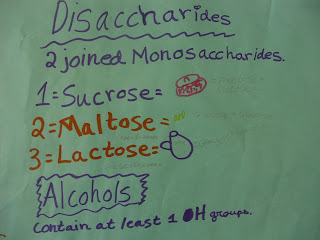 Disaccharides
2 joined Monosaccharides.
1=Sucrose=
2=Maltose=
3=Lactose=
Alcohols
Contain at least 1 OH groups.